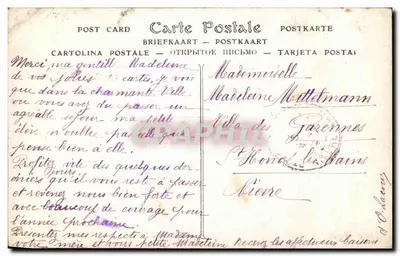 POST CARD Carte Postale POSTKARTE
BRIEFKAART - POSTKAART
CARTOLINA POSTALE - ОТКРЫТОЕ ПИСЬМО - TARJETA POSTAL
Merci, ma gentille Madeleine
de vos jolies cartes, je vois
que dans la charmante Ville
où vous avez dû passer un
agréable séjour ma petite
élève n'oublie pas celle qui
pense bien à elle.
Profitez vite des quelques der-
niers jours qu'il vous reste à passer
et revenez nous bien forte et
avec beaucoup de courage pour
l'année prochaine.
Présentez mes respects à Madame
votre mère et vous petite Madeleine recevez les affectueux baisers
Mademoiselle
Madeleine Mittelmann
Villa des Garennes
St Honoré les Bains
Nièvre